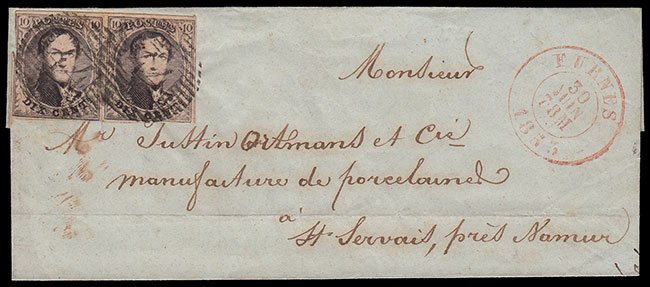 10 POSTES 10
DIX CENT.
10 POSTES 10
DIX CENT.
FURNES
30
JUIN
1855
Monsieur
Mr Justin Ortmans et Cie
manufacture de porcelaines
à
St Servais, près Namur